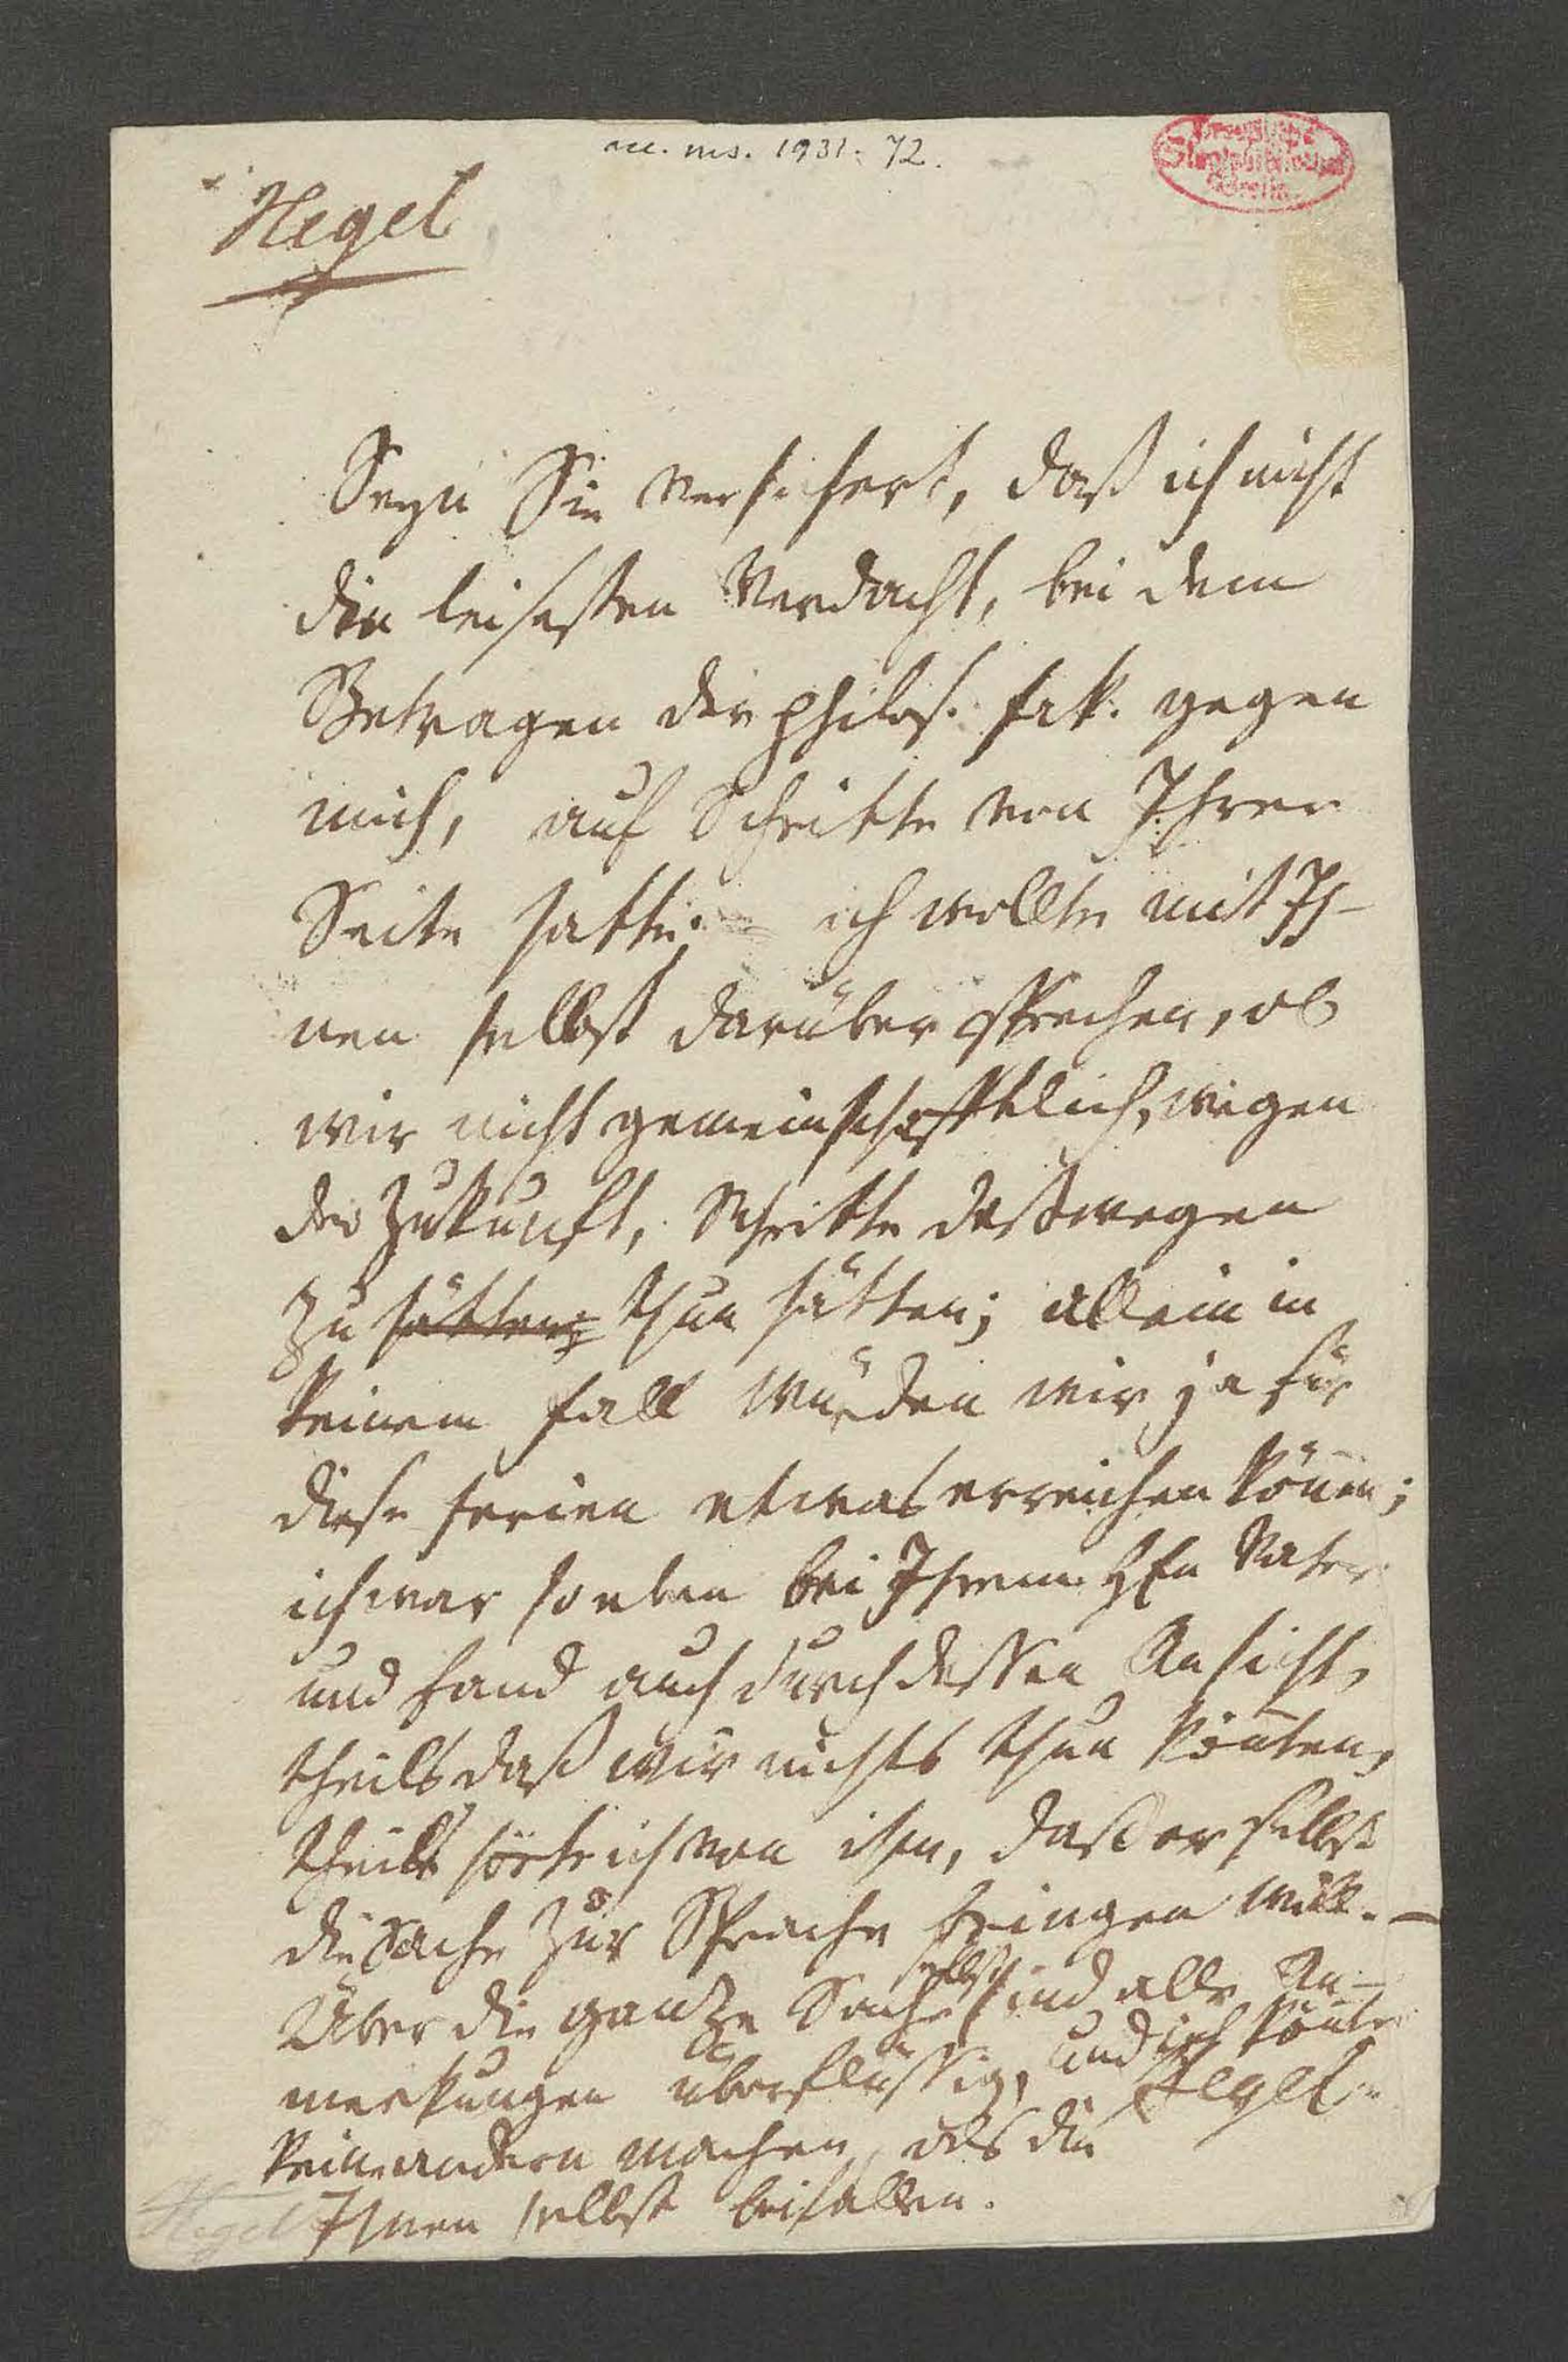 acc. ms. 1931. 72.
Preussische
Staatsbibliothek
Berlin
Hegel
Seyn Sie versichert, daß ich nicht
den leisesten Verdacht, bei dem
Betragen der philos. Fak. gegen
mich, auf Schritte von Ihrer
Seite hatte; ich wollte mit Ih-
nen selbst darüber sprechen, ob
wir nicht gemeinschafftlich, wegen
der Zukunft, Schritte deßwegen
zu hätten; thun hätten; allein in
keinem Fall würden wir ja für
diese Ferien etwas erreichen können;
ich war so eben bei Ihrem HEn Vater
und fand auch durch dessen Ansicht,
theils daß wir nichts thun könnten,
theils hörte ich von ihm, daß er selbst
die Sache zur Sprache bringen will. –
Über die ganze Sache selbst sind alle An-
merkungen überflüssig, und ich könnte
keine andern machen, als die
Ihnen selbst beifallen.
Hegel
Hegel